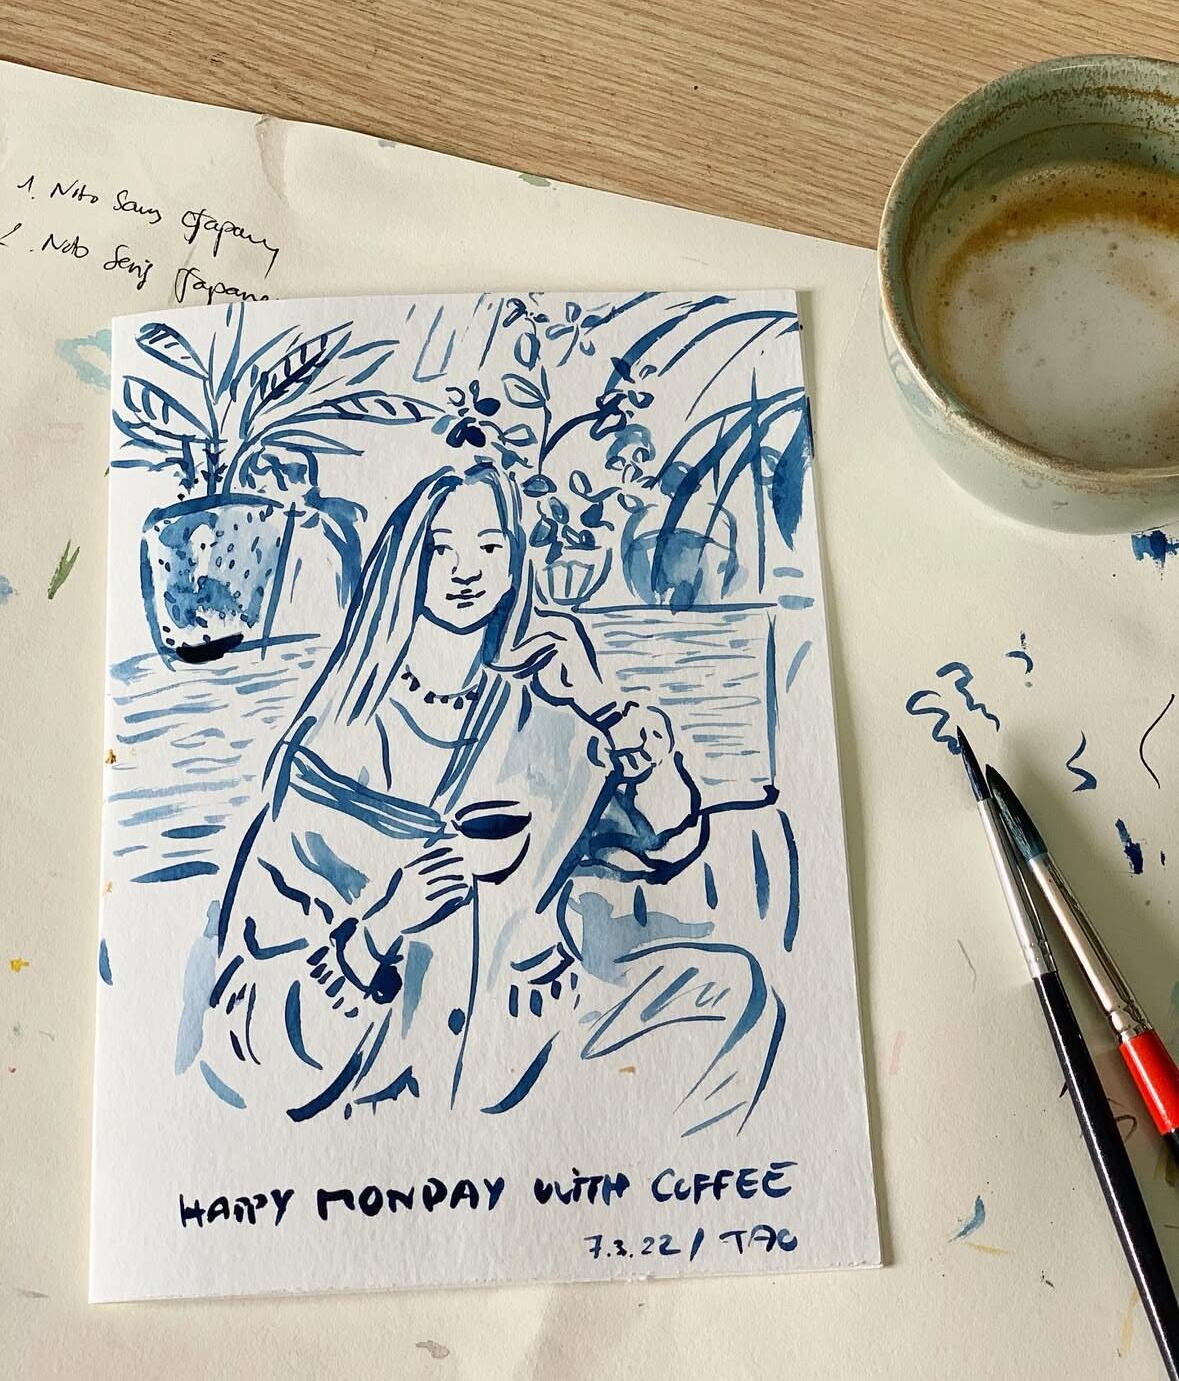 1. Noto Sans Japan
2. Noto Serif Japan
HAPPY MONDAY WITH COFFEE
7.3.22 / TAO